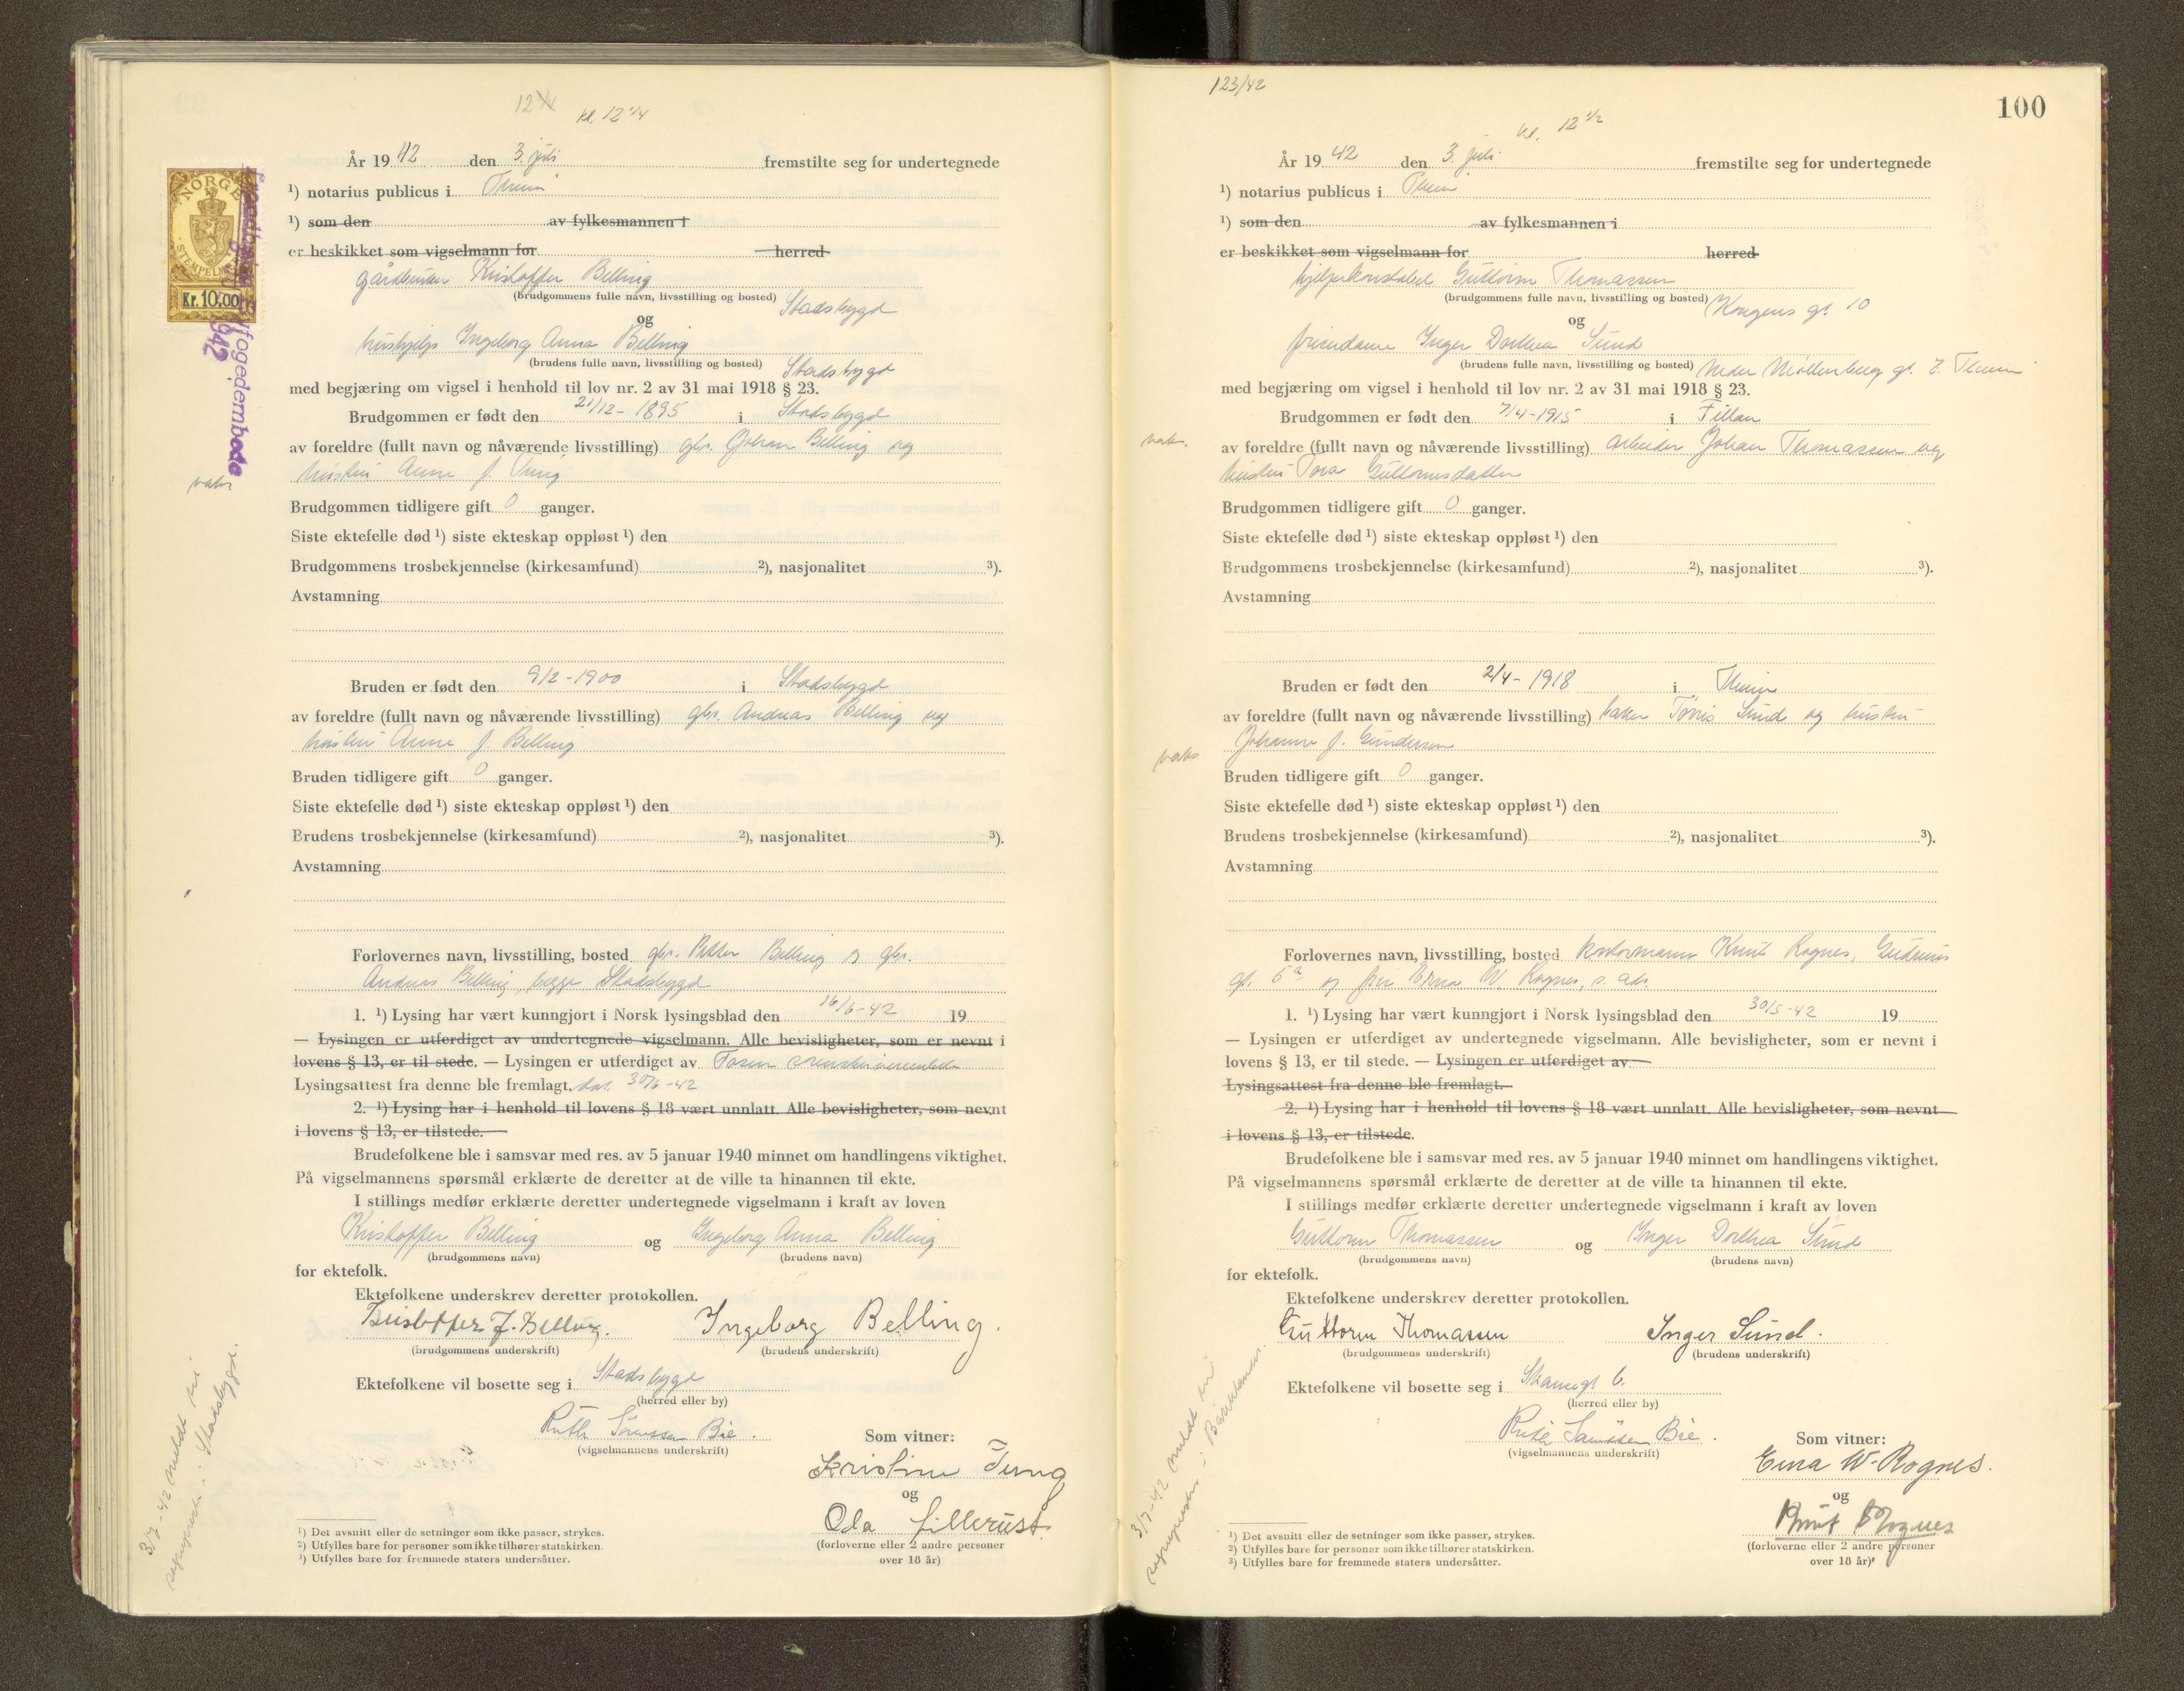 12 1/4
kl. 12 1/4
År 19 42 den 3. juli fremstilte seg for undertegnede
¹) notarius publicus i Thum
¹) som den av fylkesmannen i
er beskikket som vigselmann for herred
gårdbruker Kristoffer Belling
(brudgommens fulle navn, livsstilling og bosted) Stadsbygd
og
hushjelp Ingeborg Anna Belling
(brudens fulle navn, livsstilling og bosted) Stadsbygd
med begjæring om vigsel i henhold til lov nr. 2 av 31 mai 1918 § 23.
Brudgommen er født den 21/12 - 1895 i Stadsbygd
av foreldre (fullt navn og nåværende livsstilling) gbr. Johan Belling og
hustru Anne f. Tung
Brudgommen tidligere gift 0 ganger.
Siste ektefelle død ¹) siste ekteskap oppløst ¹) den
Brudgommens trosbekjennelse (kirkesamfund) ²), nasjonalitet ³).
Avstamning
Bruden er født den 9/2 - 1900 i Stadsbygd
av foreldre (fullt navn og nåværende livsstilling) gbr. Andreas Belling og
hustru Anne f. Belling
Bruden tidligere gift 0 ganger.
Siste ektefelle død ¹) siste ekteskap oppløst ¹) den
Brudens trosbekjennelse (kirkesamfund) ²), nasjonalitet ³).
Avstamning
Forlovernes navn, livsstilling, bosted gbr. Petter Belling og gbr.
Andreas Belling, begge Stadsbygd
1. ¹) Lysing har vært kunngjort i Norsk lysingsblad den 16/6-42 19
— Lysingen er utferdiget av undertegnede vigselmann. Alle bevisligheter, som er nevnt i
lovens § 13, er til stede. — Lysingen er utferdiget av Fosen sorenskriverembede
Lysingsattest fra denne ble fremlagt. dat. 30/6-42
2. ¹) Lysing har i henhold til lovens § 18 vært unnlatt. Alle bevisligheter, som nevnt
i lovens § 13, er tilstede.
Brudefolkene ble i samsvar med res. av 5 januar 1940 minnet om handlingens viktighet.
På vigselmannens spørsmål erklærte de deretter at de ville ta hinannen til ekte.
I stillings medfør erklærte deretter undertegnede vigselmann i kraft av loven
Kristoffer Belling og Ingeborg Anna Belling
(brudgommens navn) (brudens navn)
for ektefolk.
Ektefolkene underskrev deretter protokollen.
Kristoffer J. Belling. Ingeborg Belling.
(brudgommens underskrift) (brudens underskrift)
Ektefolkene vil bosette seg i Stadsbygd
(herred eller by)
Bie.
(vigselmannens underskrift)
Som vitner:
Kristine Tung
og
Oda Lillerust.
(forloverne eller 2 andre personer
over 18 år)
¹) Det avsnitt eller de setninger som ikke passer, strykes.
²) Utfylles bare for personer som ikke tilhører statskirken.
³) Utfylles bare for fremmede staters undersåtter.
NORGE
STEMPEL
Kr. 10.00
1942
3/7-42 meldt til
sogneprest i Stadsbygd.
123/42
100
kl. 12 1/2
År 19 42 den 3. juli fremstilte seg for undertegnede
¹) notarius publicus i Thum
¹) som den av fylkesmannen i
er beskikket som vigselmann for herred
hjelpekonstabel Guttorm Thomassen
(brudgommens fulle navn, livsstilling og bosted) Kongens gt. 10
og
frisørdame Inger Dorthea Sund
(brudens fulle navn, livsstilling og bosted) Nedre Møllenberg gt. Thum
med begjæring om vigsel i henhold til lov nr. 2 av 31 mai 1918 § 23.
Brudgommen er født den 7/4-1915 i Fillan
av foreldre (fullt navn og nåværende livsstilling) arbeider Johan Thomassen og
hustru Tora Guttormsdatter
Brudgommen tidligere gift 0 ganger.
Siste ektefelle død ¹) siste ekteskap oppløst ¹) den
Brudgommens trosbekjennelse (kirkesamfund) ²), nasjonalitet ³).
Avstamning
Bruden er født den 2/4 - 1918 i Thum
av foreldre (fullt navn og nåværende livsstilling) baker Tønis Sund og hustru
Johanne f. Gundersen
Bruden tidligere gift 0 ganger.
Siste ektefelle død ¹) siste ekteskap oppløst ¹) den
Brudens trosbekjennelse (kirkesamfund) ²), nasjonalitet ³).
Avstamning
Forlovernes navn, livsstilling, bosted kontormann Knut Rognes, Gudruns
gt. 5a og fru Erna W. Rognes, s. ads.
1. ¹) Lysing har vært kunngjort i Norsk lysingsblad den 30/5-42 19
— Lysingen er utferdiget av undertegnede vigselmann. Alle bevisligheter, som er nevnt i
lovens § 13, er til stede. — Lysingen er utferdiget av
Lysingsattest fra denne ble fremlagt.
2. ¹) Lysing har i henhold til lovens § 18 vært unnlatt. Alle bevisligheter, som nevnt
i lovens § 13, er tilstede.
Brudefolkene ble i samsvar med res. av 5 januar 1940 minnet om handlingens viktighet.
På vigselmannens spørsmål erklærte de deretter at de ville ta hinannen til ekte.
I stillings medfør erklærte deretter undertegnede vigselmann i kraft av loven
Guttorm Thomassen og Inger Dorthea Sund
(brudgommens navn) (brudens navn)
for ektefolk.
Ektefolkene underskrev deretter protokollen.
Guttorm Thomassen Inger Sund.
(brudgommens underskrift) (brudens underskrift)
Ektefolkene vil bosette seg i 6.
(herred eller by)
Bie.
(vigselmannens underskrift)
Som vitner:
Erna W. Rognes.
og
Knut Rognes
(forloverne eller 2 andre personer
over 18 år)
¹) Det avsnitt eller de setninger som ikke passer, strykes.
²) Utfylles bare for personer som ikke tilhører statskirken.
³) Utfylles bare for fremmede staters undersåtter.
3/7-42 meldt til
sogneprest i Bakklandet.